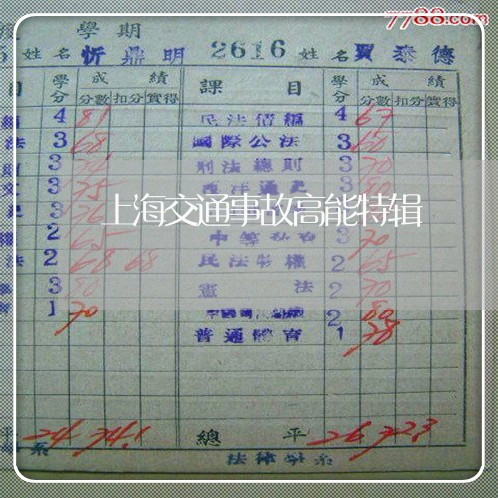 7788.com
學期
姓名 忻鼎明 2616 姓名 賈泰德
目 學分 成績 分數 扣分 實得 課目 學分 成績 分數 扣分 實得
4 81 民法債編 4 67
法 3 68 國際公法 3 60
3 刑法總則 3 70
3 75 西洋通史 3 80
上海交通事故高能特辑
2 65 3 70
法 2 68 68 民法物權 2 65
3 80 憲法 2 70
1 70 2 80
普通體育 1 78
平 24 74.1 總平 26 72.3
系 法律學系